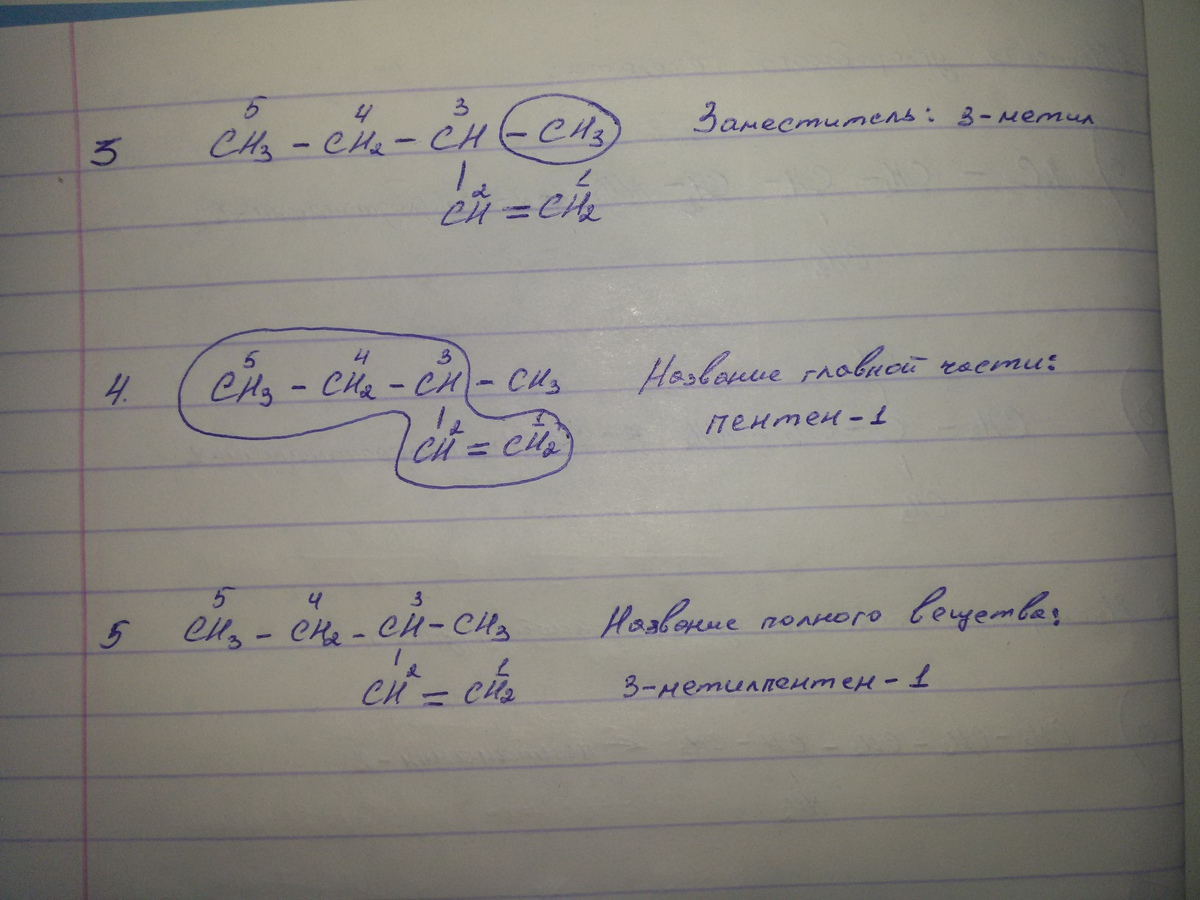 5 4 3
3 CH₃ – CH₂ – CH – CH₃ Заместитель: 3-метил
| 2 1
CH = CH₂
5 4 3
4. CH₃ – CH₂ – CH – CH₃ Название главной части:
| 2 1 пентен-1
CH = CH₂
5 4 3
5 CH₃ – CH₂ – CH – CH₃ Название полного вещества:
| 2 1
CH = CH₂ 3-метилпентен-1